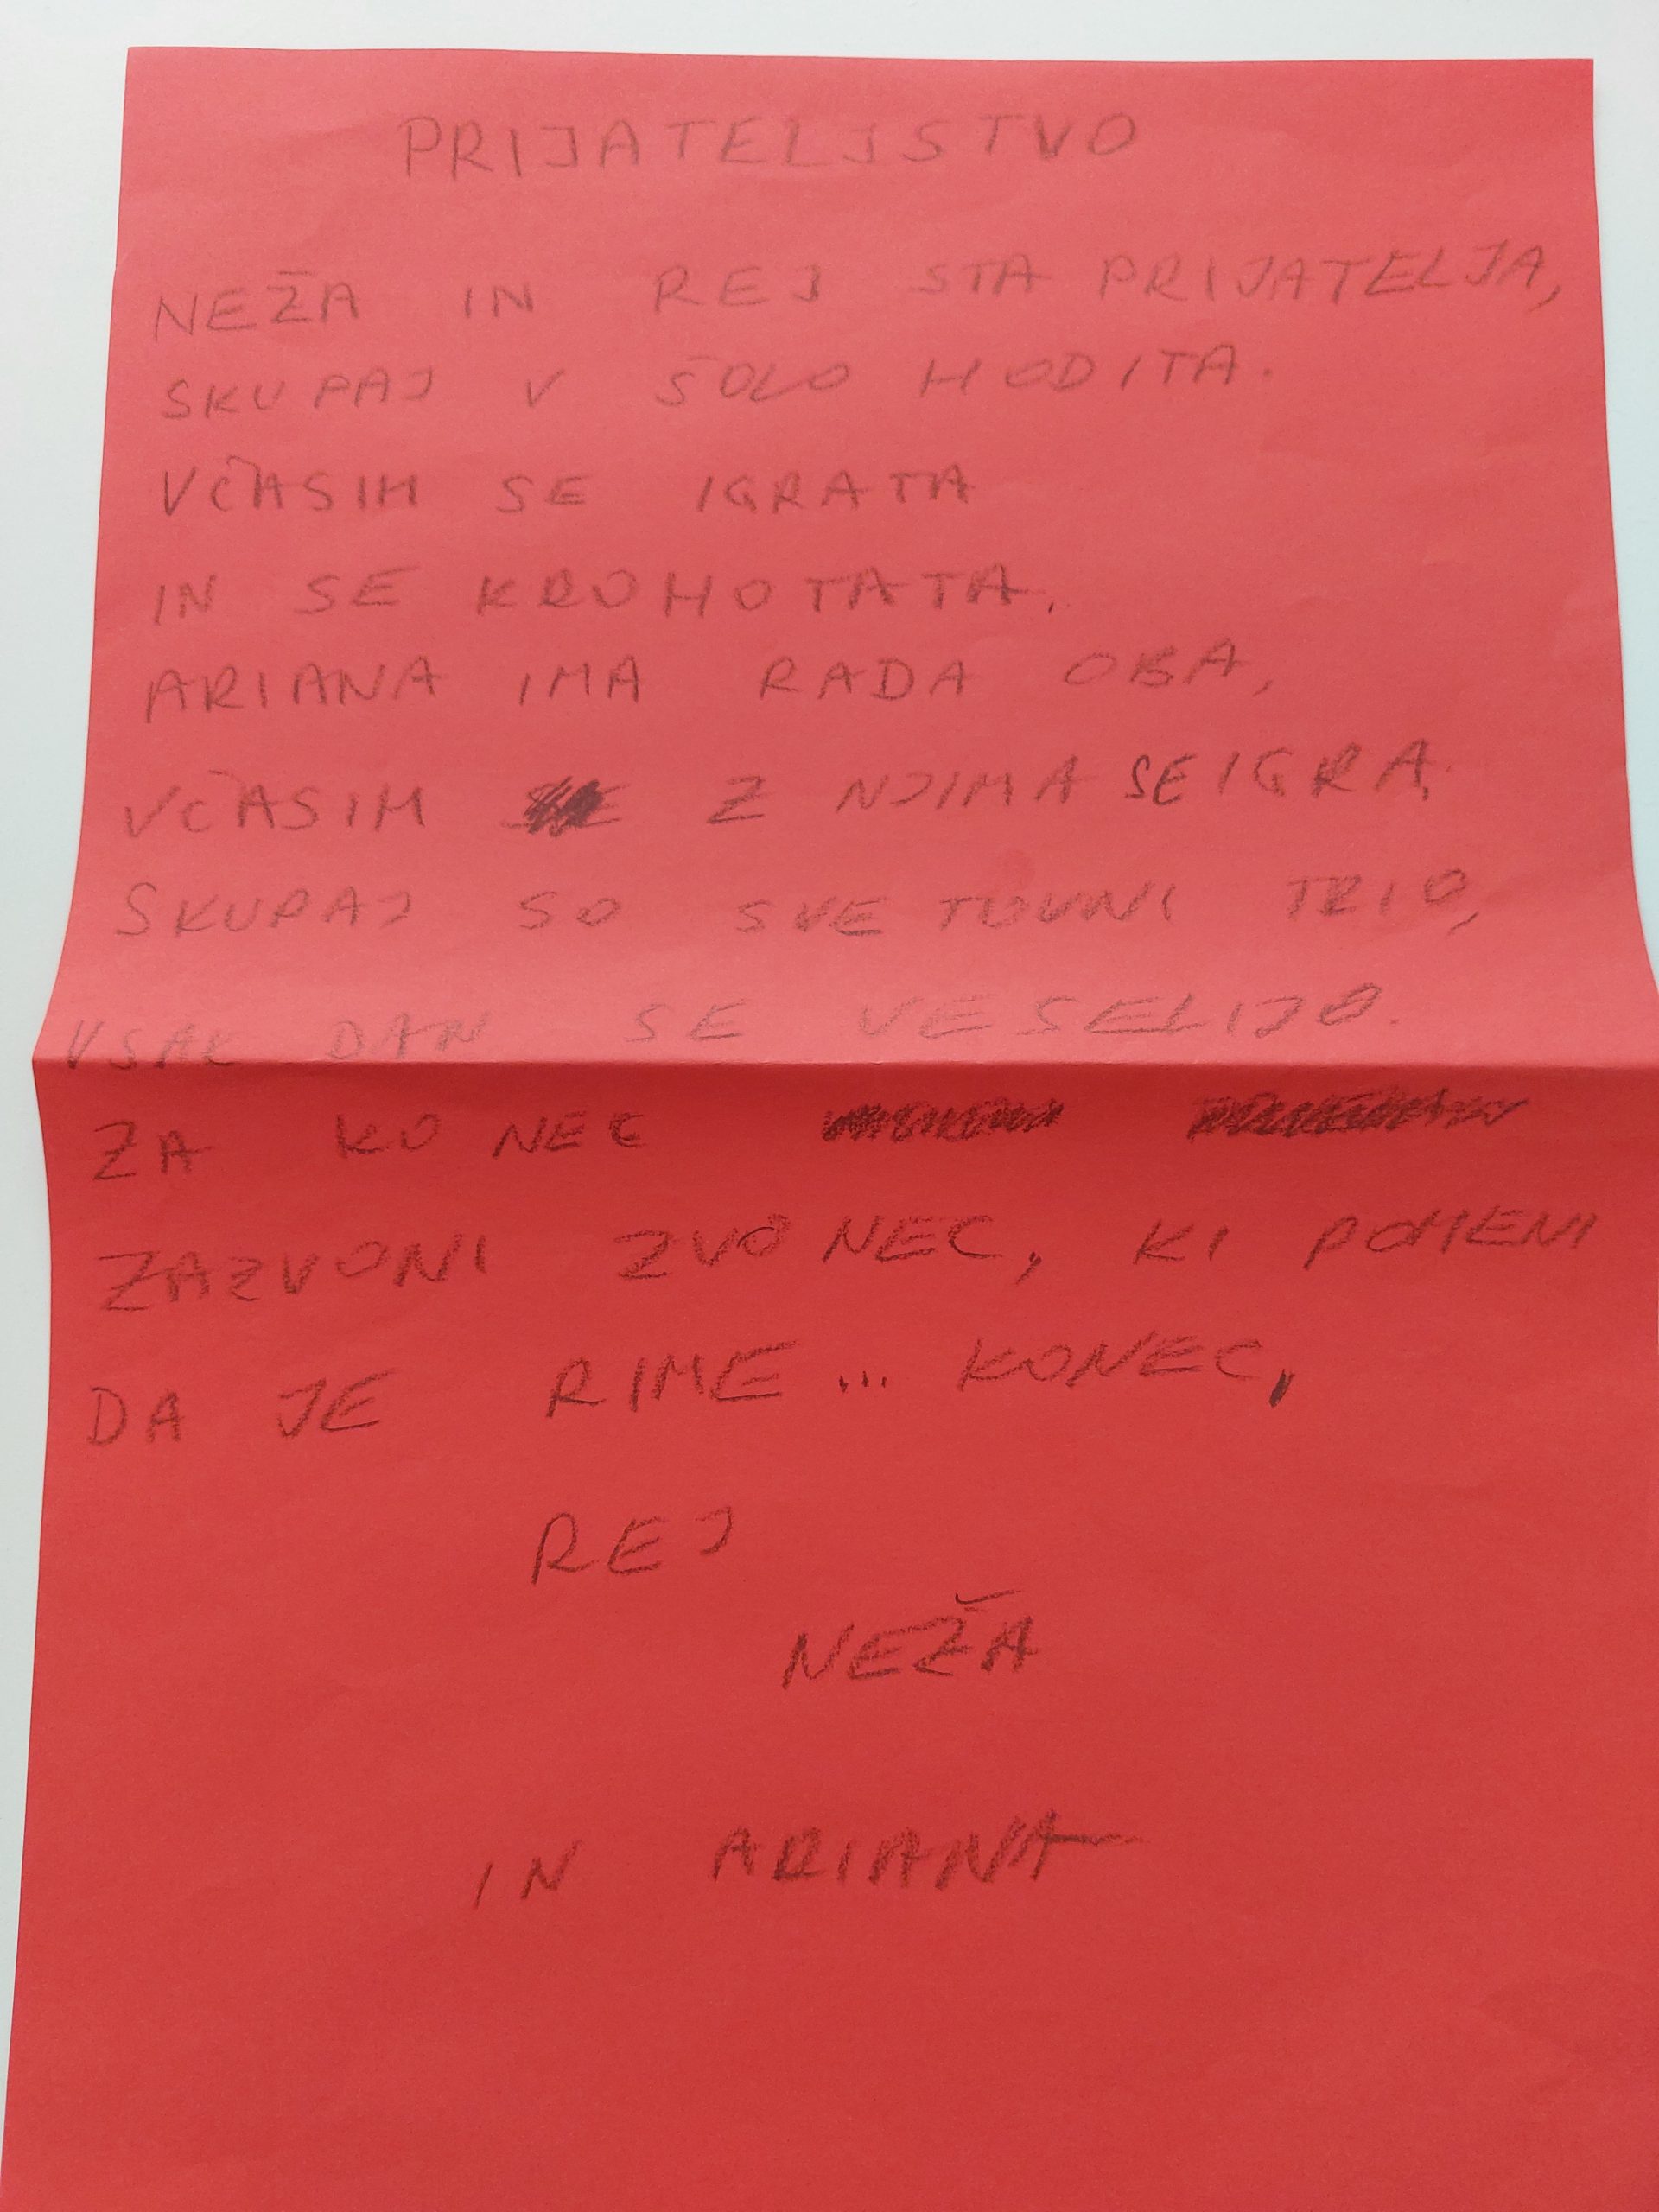 PRIJATELJSTVO
NEŽA IN REJ STA PRIJATELJA,
SKUPAJ V ŠOLO HODITA.
VČASIH SE IGRATA
IN SE KROHOTATA.
ARIANA IMA RADA OBA,
VČASIH Z NJIMA SE IGRA.
SKUPAJ SO SVETOVNI TRIO,
VSAK DAN SE VESELIJO.
ZA KONEC
ZAZVONI ZVONEC, KI POMENI
DA JE RIME... KONEC,
REJ
NEŽA
IN ARIANA